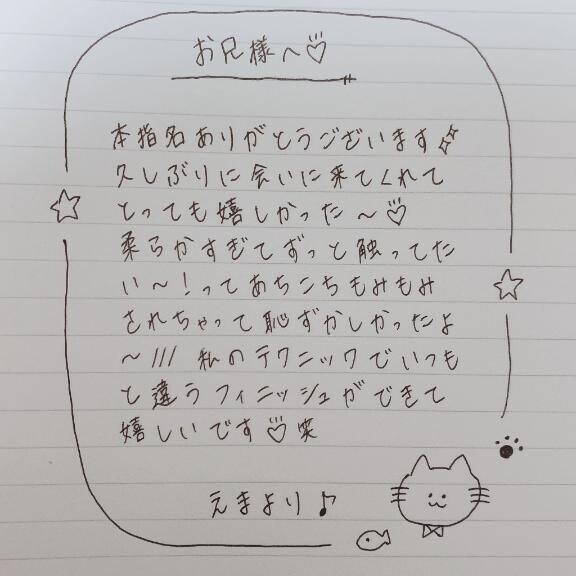 お兄様へ♡
本指名ありがとうございます✨
久しぶりに会いに来てくれて
とっても嬉しかった〜♡
柔らかすぎてずっと触ってた
い〜！ってあちこちもみもみ
されちゃって恥ずかしかったよ
〜/// 私のテクニックでいつも
と違うフィニッシュができて
嬉しいです♡笑
えまより♪